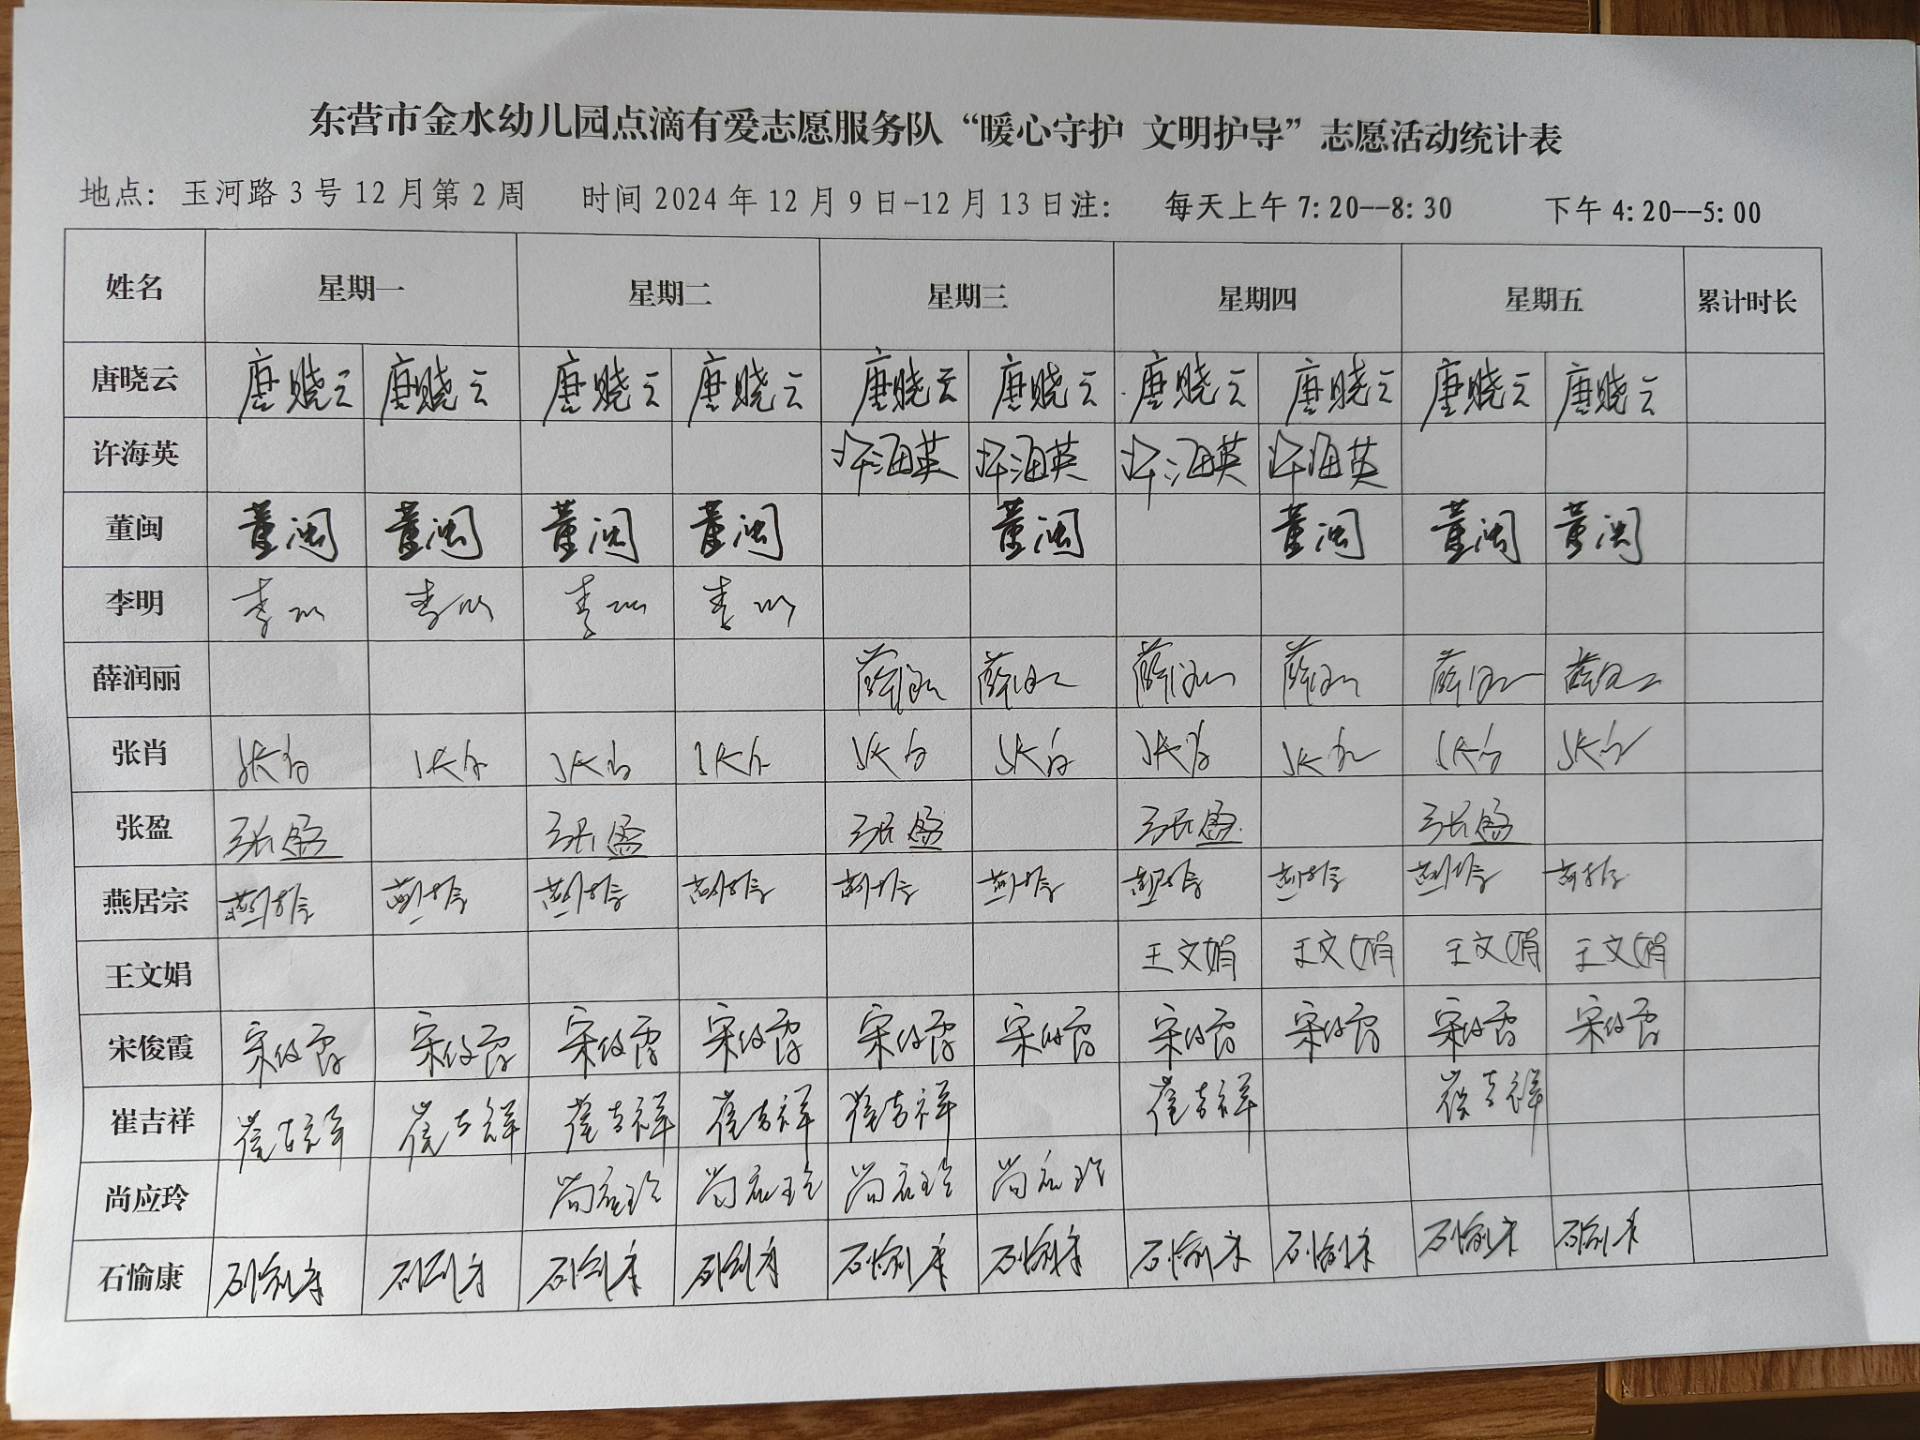 东营市金水幼儿园点滴有爱志愿服务队“暖心守护 文明护导”志愿活动统计表
地点：玉河路3号12月第2周 时间2024年12月9日-12月13日注： 每天上午7:20--8:30 下午4:20--5:00
姓名 星期一 星期二 星期三 星期四 星期五 累计时长
唐晓云 唐晓云 唐晓云 唐晓云 唐晓云 唐晓云 唐晓云 唐晓云 唐晓云 唐晓云 唐晓云
许海英 许海英 许海英 许海英 许海英
董闽 董闽 董闽 董闽 董闽 董闽 董闽 董闽 董闽
李明 李明 李明 李明 李明
薛润丽 薛润丽 薛润丽 薛润丽 薛润丽 薛润丽 薛润丽
张肖 张肖 张肖 张肖 张肖 张肖 张肖 张肖 张肖 张肖 张肖
张盈 张盈 张盈 张盈 张盈 张盈
燕居宗 燕居宗 燕居宗 燕居宗 燕居宗 燕居宗 燕居宗 燕居宗 燕居宗 燕居宗 燕居宗
王文娟 王文娟 王文娟 王文娟 王文娟
宋俊霞 宋俊霞 宋俊霞 宋俊霞 宋俊霞 宋俊霞 宋俊霞 宋俊霞 宋俊霞 宋俊霞 宋俊霞
崔吉祥 崔吉祥 崔吉祥 崔吉祥 崔吉祥 崔吉祥 崔吉祥 崔吉祥
尚应玲 尚应玲 尚应玲 尚应玲 尚应玲
石愉康 石愉康 石愉康 石愉康 石愉康 石愉康 石愉康 石愉康 石愉康 石愉康 石愉康